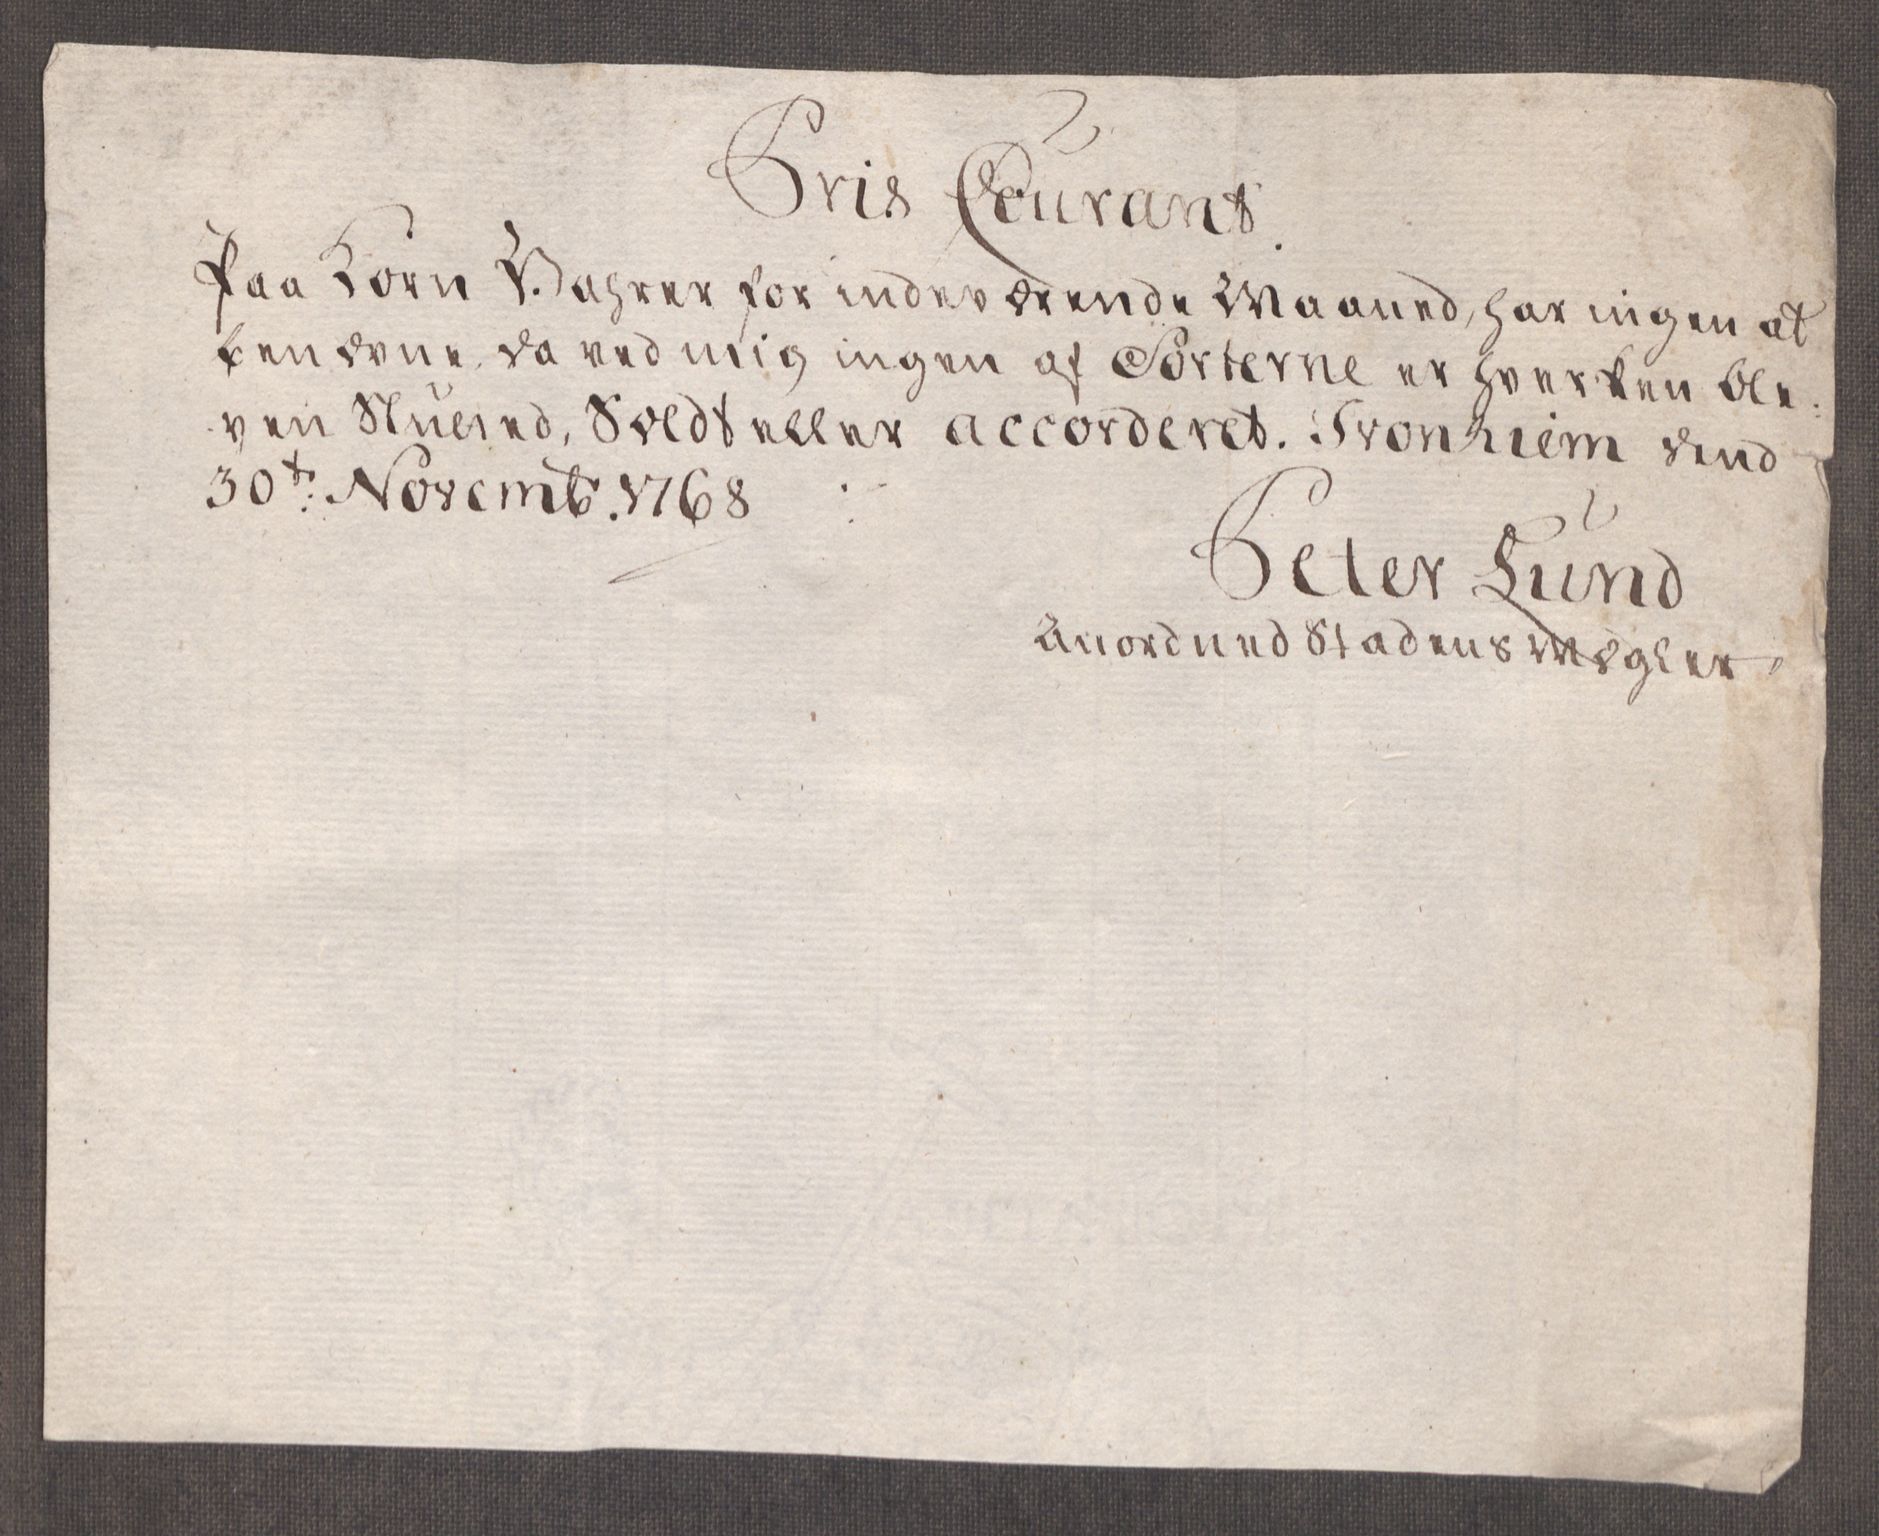 Pris Courant
Paa Korn Wahrer for indeværende Maaned, har ingen at
benævne, da ved mig ingen af Sorterne er hverken ble:
ven Slutted, Soldt eller accorderet. Tronhiem dend
30te Novemb. 1768
Peter Lund
Anordned Stadens Mægler